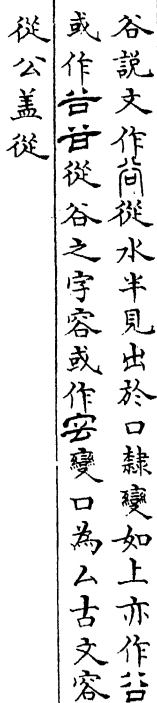 谷説文作從水半見出於口隸變如上亦作
或作從谷之字容或作變口為厶古文容
從公盖從